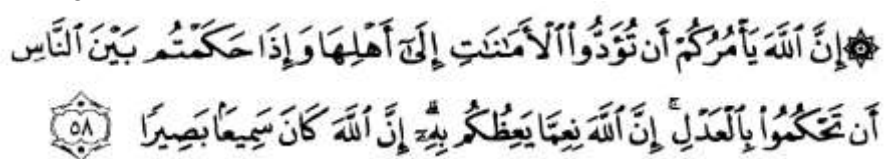 ۞إِنَّ ٱللَّهَ يَأۡمُرُكُمۡ أَن تُؤَدُّواْ ٱلۡأَمَٰنَٰتِ إِلَىٰٓ أَهۡلِهَا وَإِذَا حَكَمۡتُم بَيۡنَ ٱلنَّاسِ
أَن تَحۡكُمُواْ بِٱلۡعَدۡلِۚ إِنَّ ٱللَّهَ نِعِمَّا يَعِظُكُم بِهِۦٓۗ إِنَّ ٱللَّهَ كَانَ سَمِيعَۢا بَصِيرٗا ٥٨